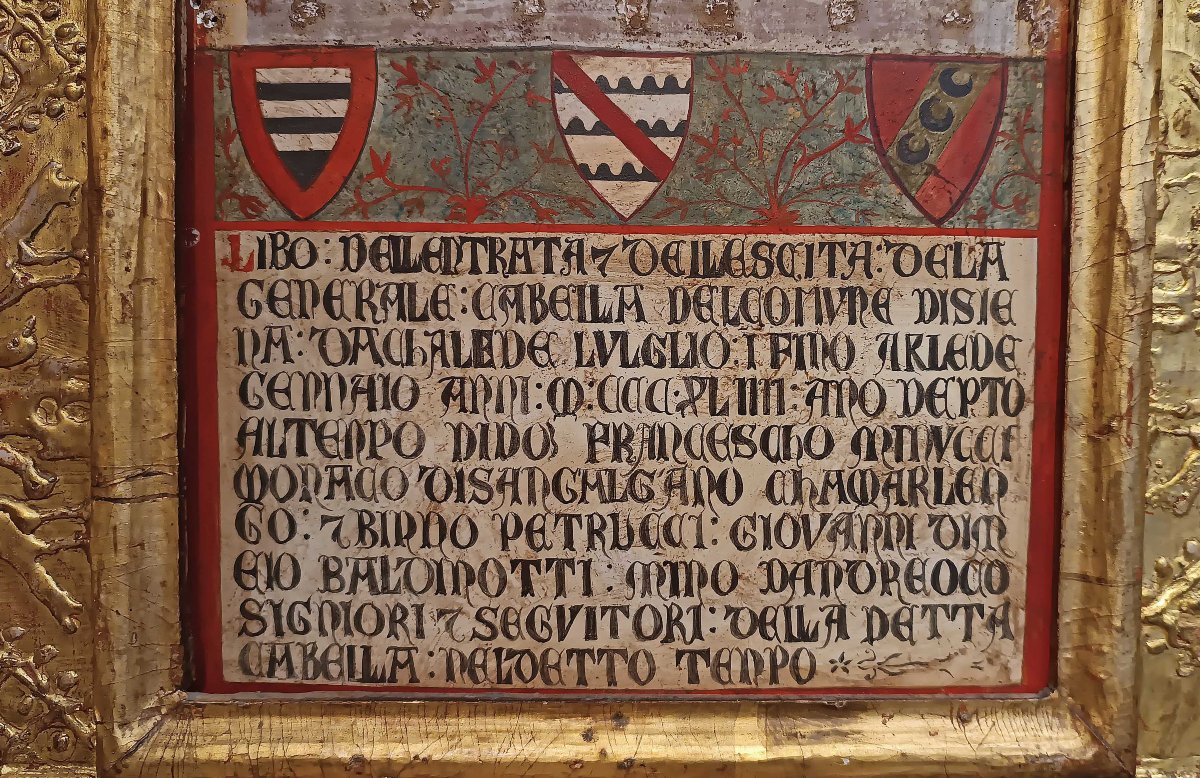 LIBO : DELLENTRATA 7 DELLESCITA : DELA
GENERALE : CABELLA DELCOMUNE DISIE
NA : DACHALENDE LULGLIO : I FINO
GENNAIO ANNI : M : CCCC : XLIIII : ANO DEPTO
ALTENPO DIDON FRANCESCHO MINUCCI
MONACO DISANGALGANO CHAMARLEN
GO : 7 BINDO PETRUCCI : GIOVANNI DIM
EIO BALDINOTTI : MINO DANDREOCO
SIGNIORI 7 SEGUITORI : DELLA DETTA
CABELLA : NELDETTO TENPO